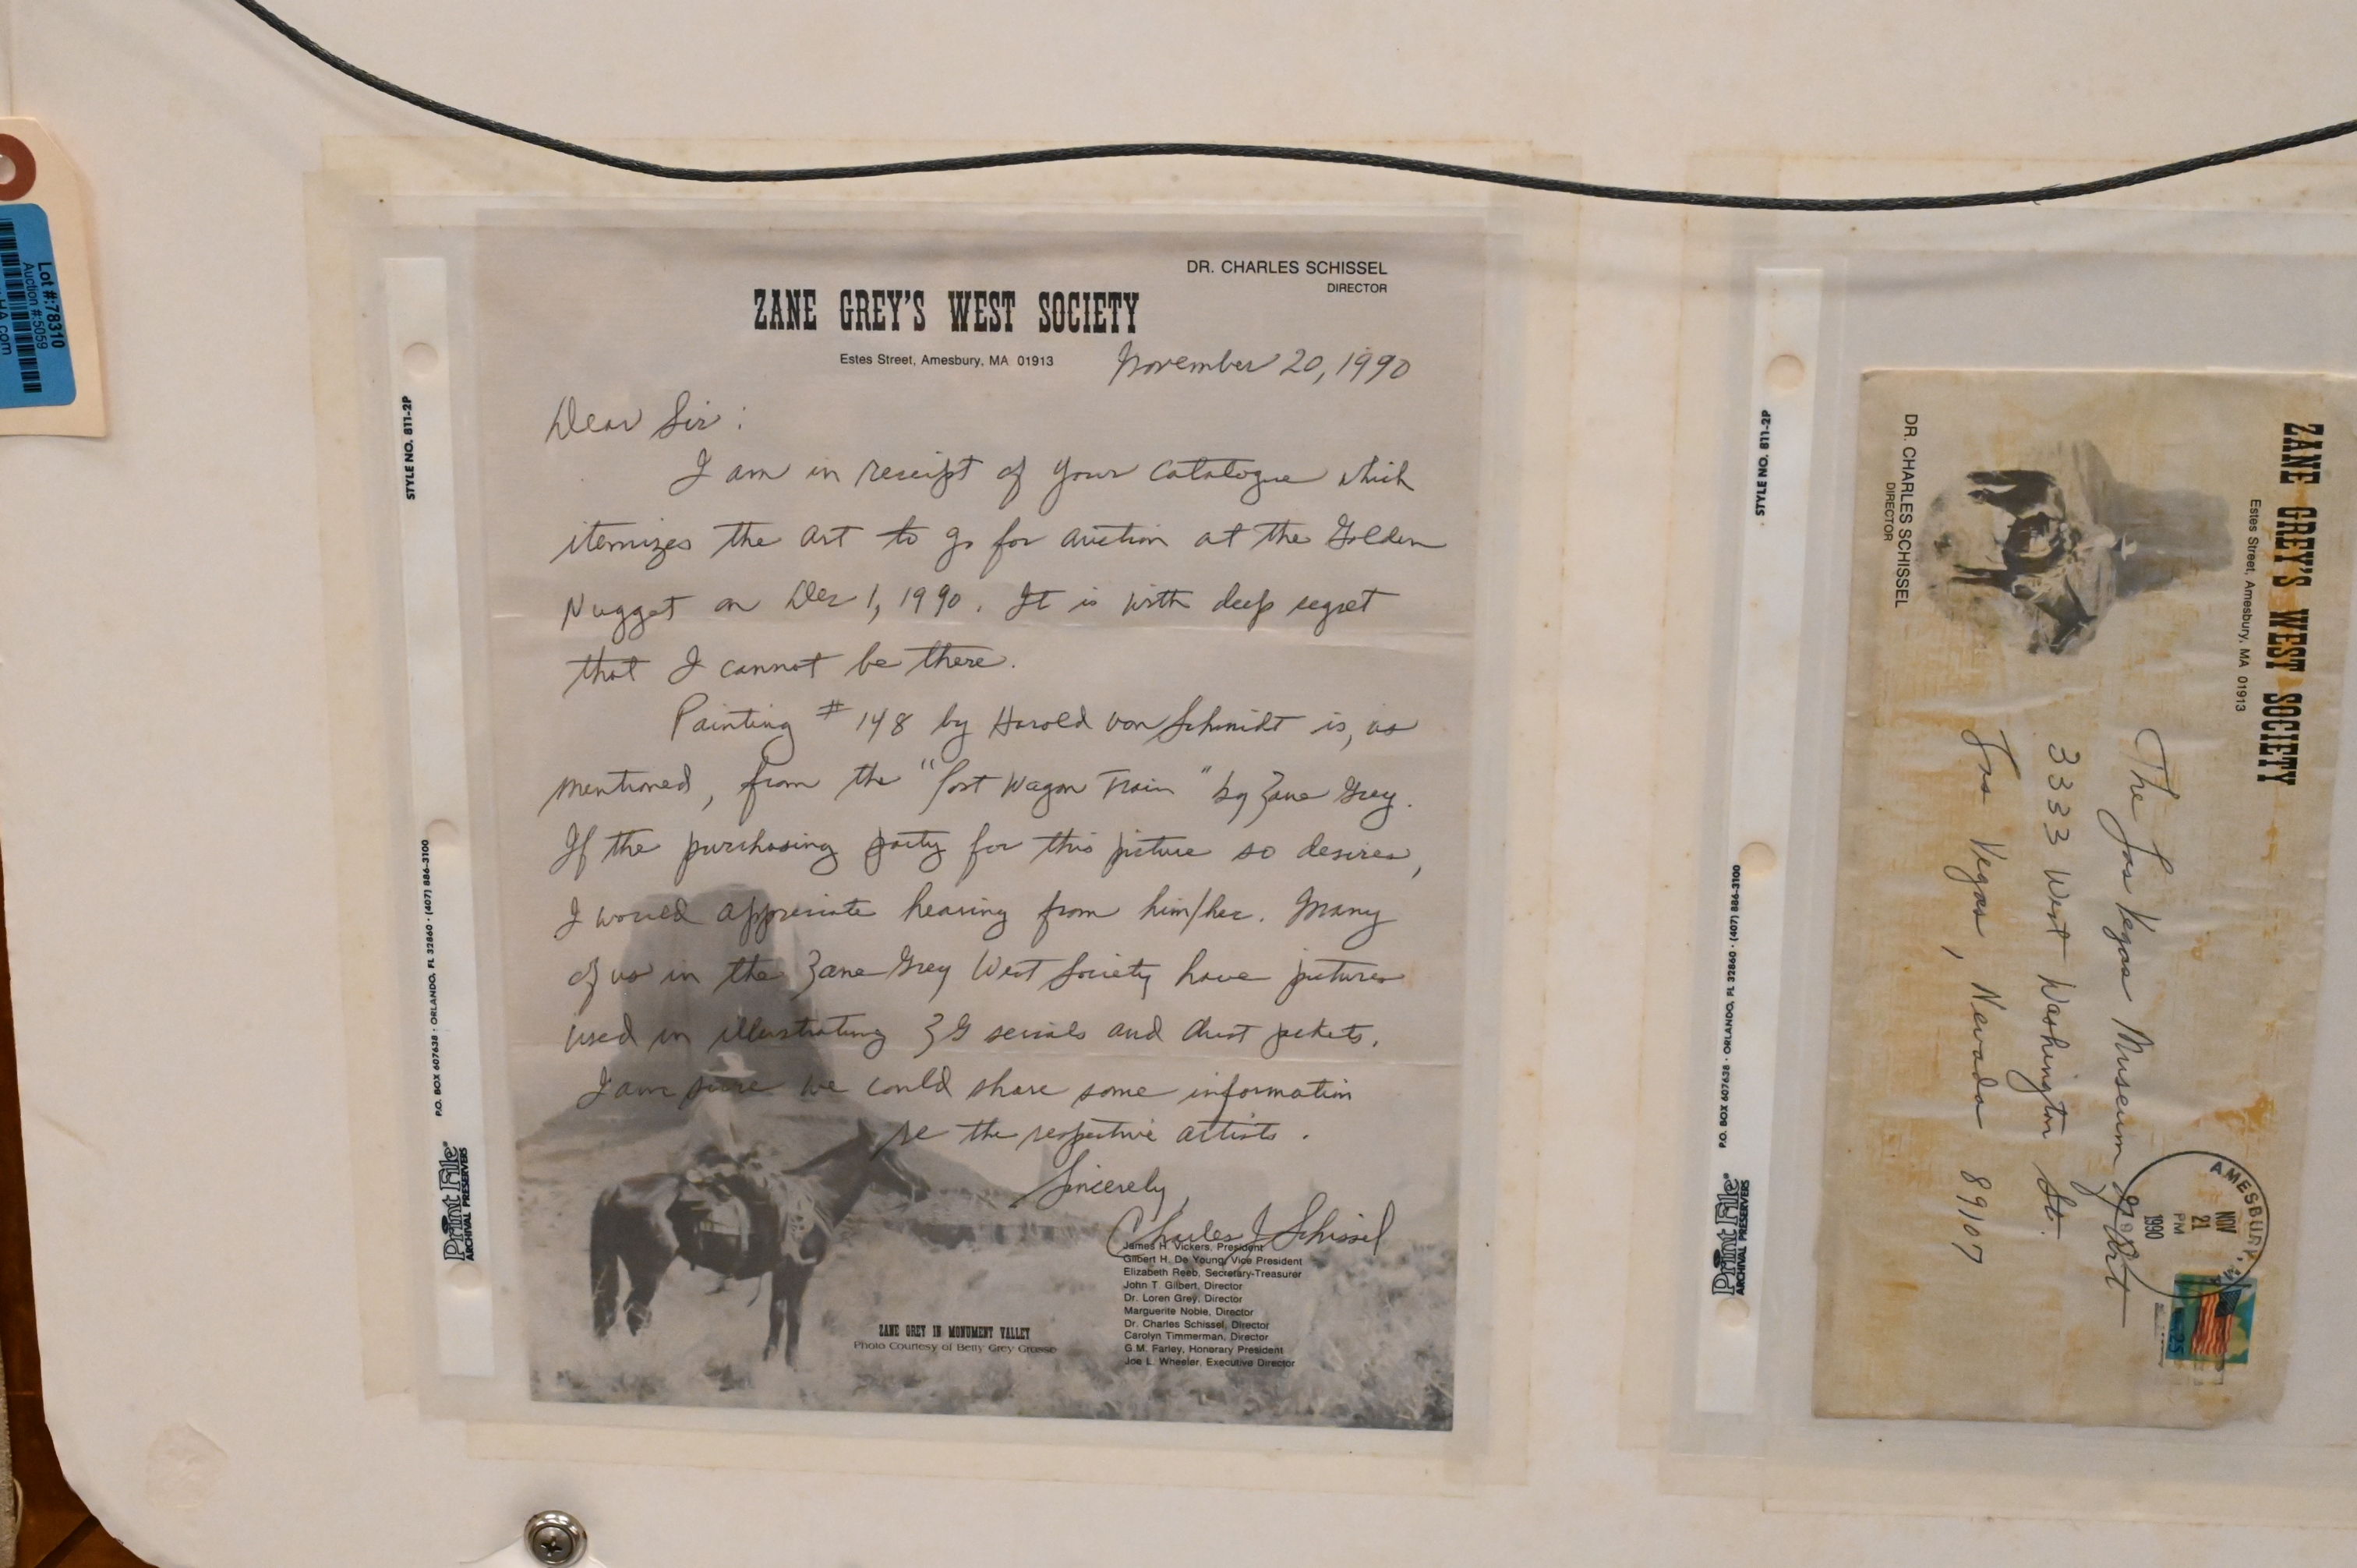 Lot #:78310
Auction #:5059
HA.com
STYLE NO. 811-2P
P.O. BOX 607638 · ORLANDO, FL 32860 · (407) 886-3100
Print File®
ARCHIVAL PRESERVERS
DR. CHARLES SCHISSEL
DIRECTOR
ZANE GREY'S WEST SOCIETY
Estes Street, Amesbury, MA 01913
November 20, 1990
Dear Sir:
I am in receipt of your catalogue which
itemizes the art to go for auction at the Golden
Nugget on Dec 1, 1990. It is with deep regret
that I cannot be there.
Painting #148 by Harold von Schmidt is, as
mentioned, from the "Lost Wagon Train" by Zane Grey.
If the purchasing party for this picture so desires,
I would appreciate hearing from him/her. Many
of us in the Zane Grey West Society have pictures
used in illustrating ZG serials and dust jackets.
I am sure we could share some information
re the respective artists.
Sincerely,
Charles J Schissel
James H. Vickers, President
Gilbert H. De Young, Vice President
Elizabeth Reeb, Secretary-Treasurer
John T. Gilbert, Director
Dr. Loren Grey, Director
Marguerite Noble, Director
Dr. Charles Schissel, Director
Carolyn Timmerman, Director
G.M. Farley, Honorary President
Joe L. Wheeler, Executive Director
ZANE GREY IN MONUMENT VALLEY
Photo Courtesy of Betty Grey Grosso
STYLE NO. 811-2P
P.O. BOX 607638 · ORLANDO, FL 32860 · (407) 886-3100
Print File®
ARCHIVAL PRESERVERS
ZANE GREY'S WEST SOCIETY
Estes Street, Amesbury, MA 01913
DR. CHARLES SCHISSEL
DIRECTOR
The Las Vegas Museum of Art
3333 West Washington St.
Las Vegas, Nevada 89107
AMESBURY, MA
NOV
21
PM
1990
25